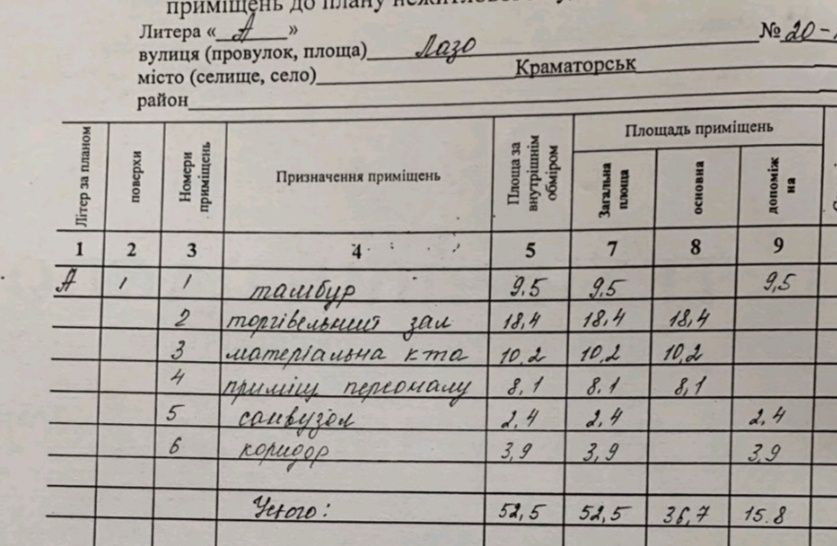 приміщень до плану нежитлового
Литера « А »
вулиця (провулок, площа) Лазо № 20-
місто (селище, село) Краматорськ
район
Літер за планом поверхи Номери приміщень Призначення приміщень Площа за внутрішнім обміром Площадь приміщень
Загальна площа основна допоміжна
1 2 3 4 5 7 8 9
А 1 1 тамбур 9.5 9,5 9,5
2 торгівельний зал 18,4 18,4 18,4
3 матеріальна кта 10,2 10,2 10,2
4 приміщ персоналу 8,1 8.1 8,1
5 санвузол 2,4 2,4 2,4
6 коридор 3,9 3,9 3,9
Усього: 52,5 52,5 36,7 15.8